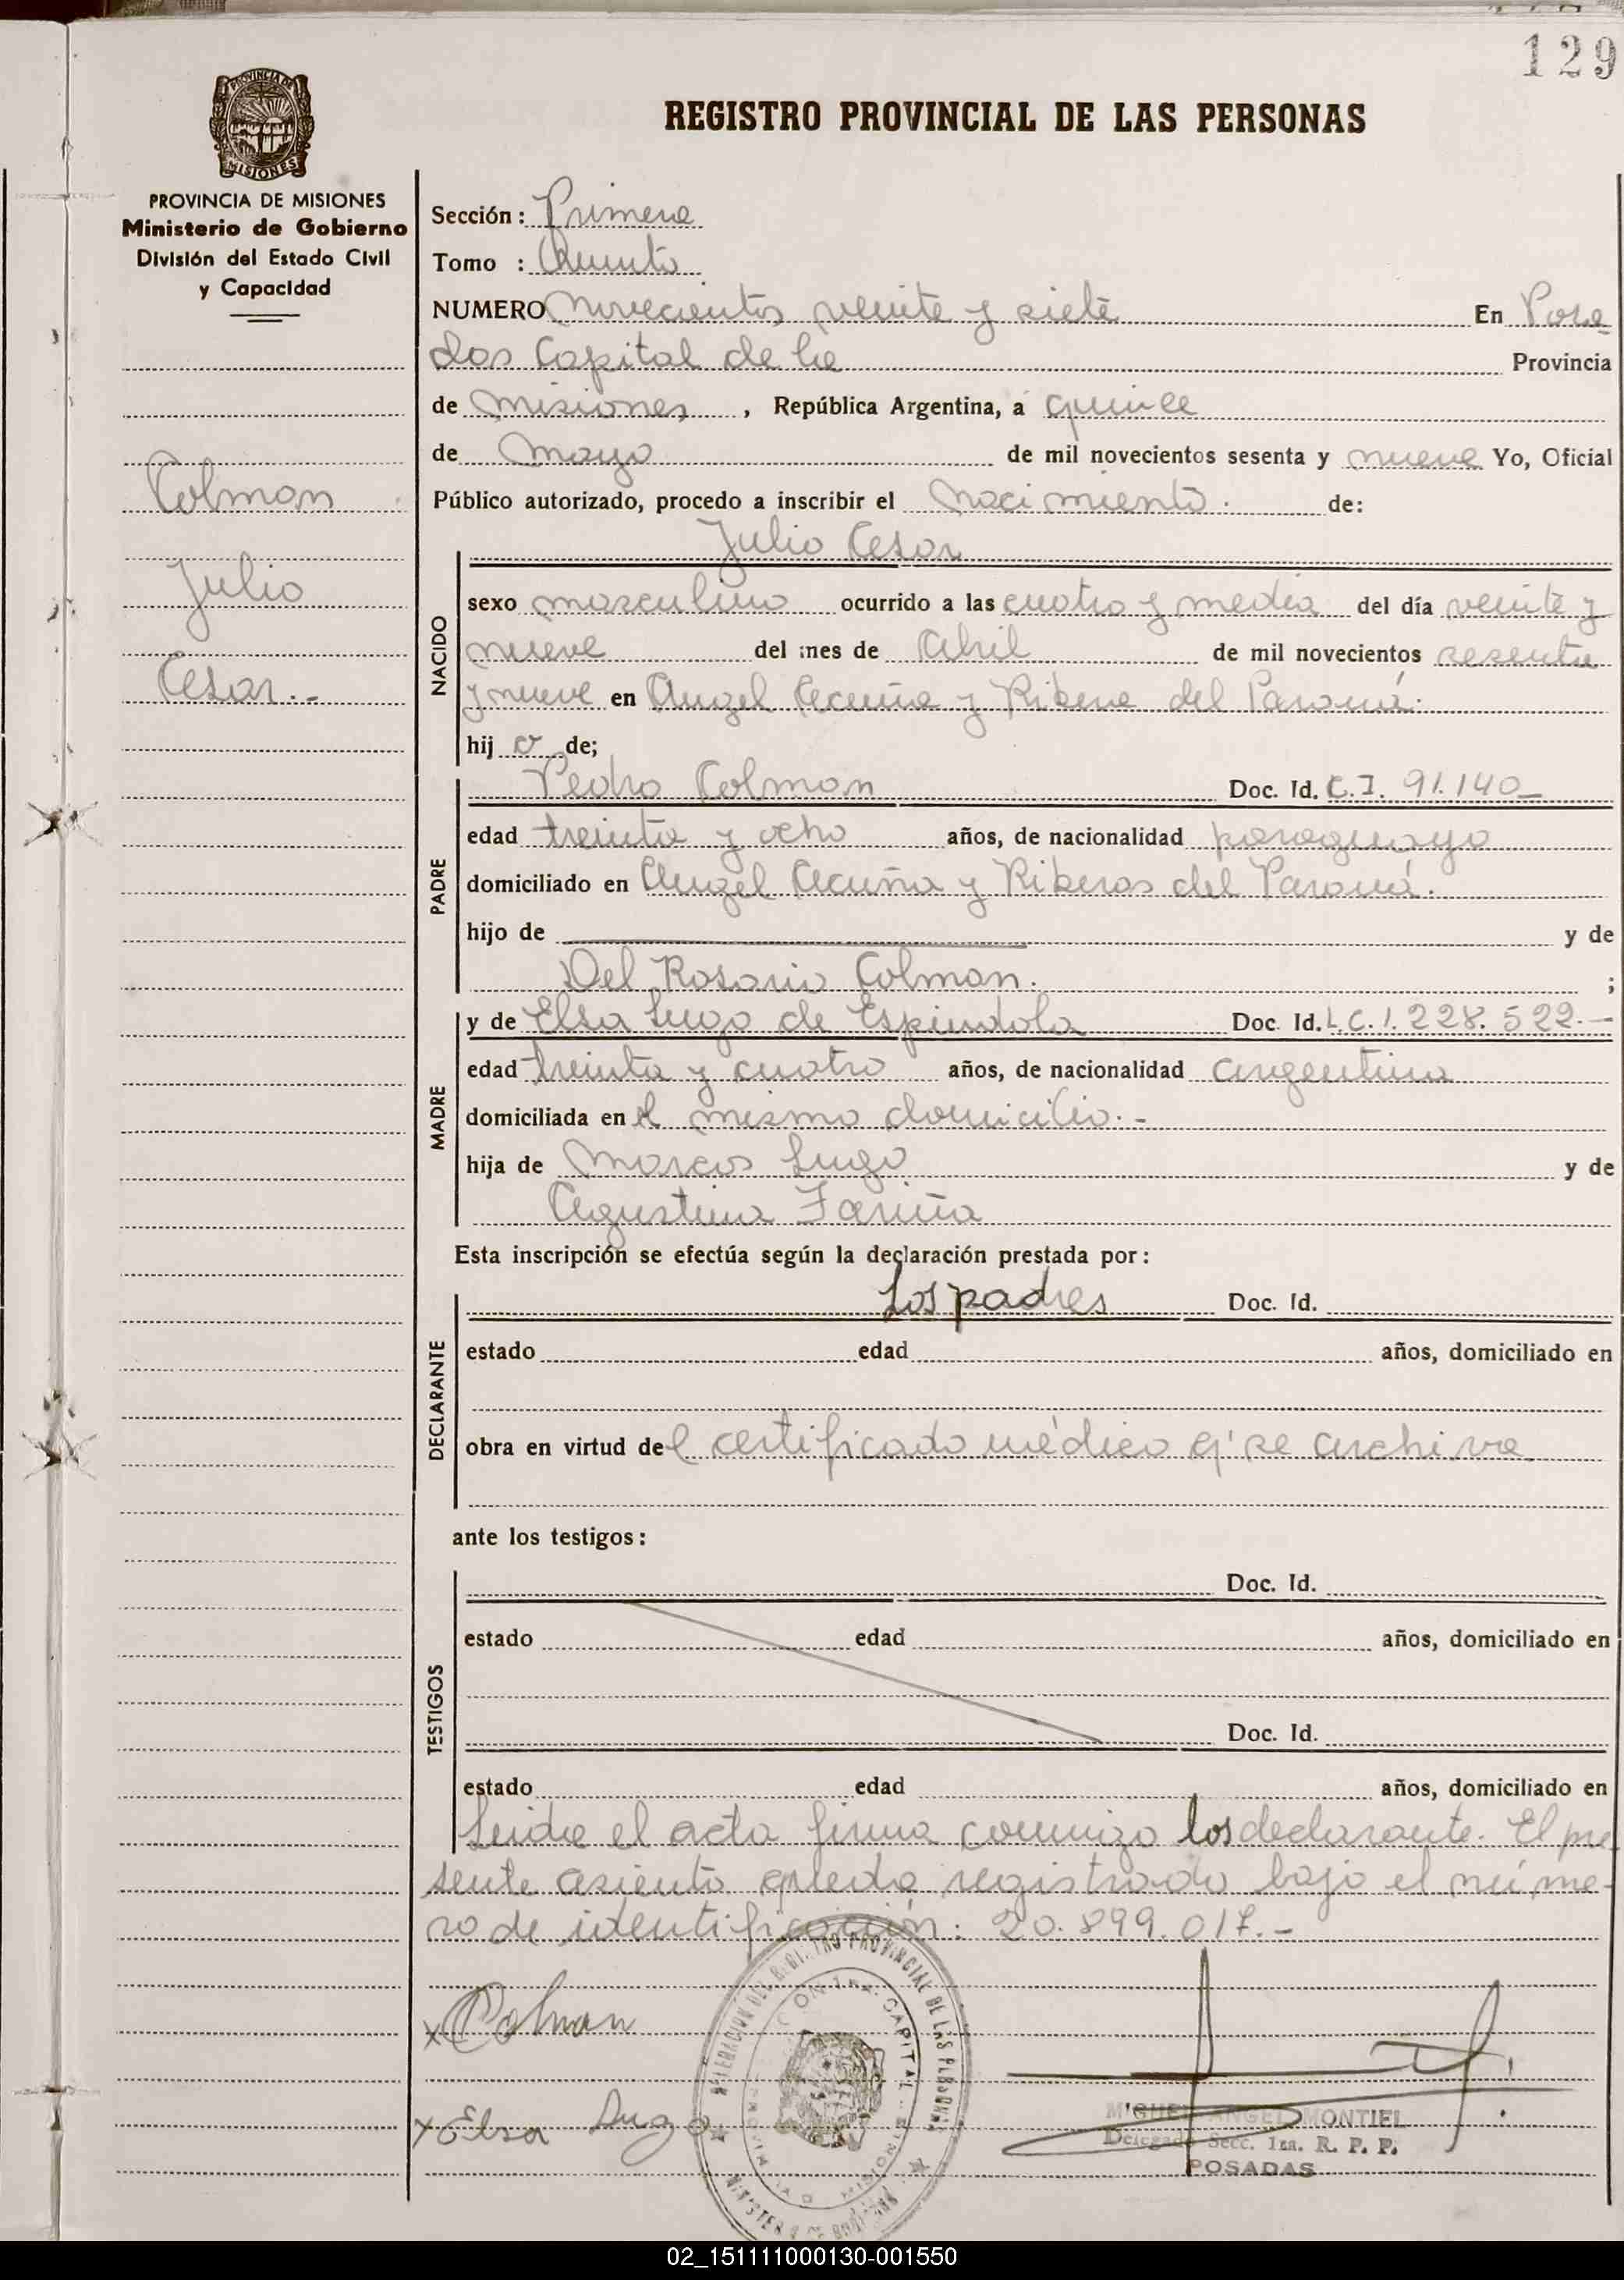 129
PROVINCIA DE MISIONES
REGISTRO PROVINCIAL DE LAS PERSONAS
PROVINCIA DE MISIONES
Ministerio de Gobierno
División del Estado Civil
y Capacidad
Colman
Julio
Cesar.-
Sección: Primera
Tomo : Quinto
NUMERO Novecientos veinte y siete En Posa
das Capital de la Provincia
de Misiones, República Argentina, a quince
de Mayo de mil novecientos sesenta y nueve Yo, Oficial
Público autorizado, procedo a inscribir el Nacimiento. de:
Julio Cesar
NACIDO
sexo masculino ocurrido a las cuatro y media del día veinte y
nueve del mes de Abril de mil novecientos sesenta
y nueve en Angel Acuña y Ribera del Paraná.
hij o de;
PADRE
Pedro Colman Doc. Id. C.I. 91.140_
edad treinta y ocho años, de nacionalidad paraguayo
domiciliado en Angel Acuña y Riberas del Paraná.
hijo de y de
Del Rosario Colman. ;
MADRE
y de Elsa Lugo de Espindola Doc. Id. L.C.1.228.522.-
edad treinta y cuatro años, de nacionalidad argentina
domiciliada en el mismo domicilio.-
hija de Marcos Lugo y de
Agustina Fariña
Esta inscripción se efectúa según la declaración prestada por:
DECLARANTE
Los padres Doc. Id.
estado edad años, domiciliado en
obra en virtud del certificado médico q' se archiva
ante los testigos:
TESTIGOS
Doc. Id.
estado edad años, domiciliado en
Doc. Id.
estado edad años, domiciliado en
Leida el acta firma conmigo los declarante. El pre
sente asiento queda registrado bajo el núme-
ro de identificación: 20.899.017.-
x Colman
x Elsa Lugo
MIGUEL ANGEL MONTIEL
Delegado Secc. 1ra. R. P. P.
POSADAS
02_151111000130-001550